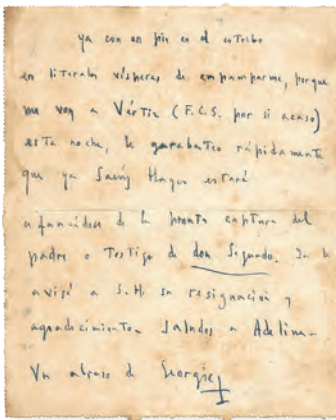 ya con un pie en el estribo
en literales vísperas de empamparme, porque
me voy a Vértiz (F.C.S. por si acaso)
esta noche, le garabateo rápidamente
que ya Saenz Hayes estará
de la pronta captura del
padre o testigo de don Segundo.
avisé a S.H. su resignación y
agradecimiento. Saludos a Adelina.
Un abrazo de Georgie